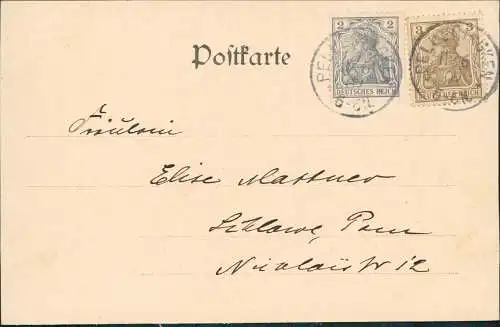 2 3
Postkarte
DEUTSCHES REICH DEUTSCHES REICH
Fräulein
Elise
Schlawe, Pom
Nicolaistr 12